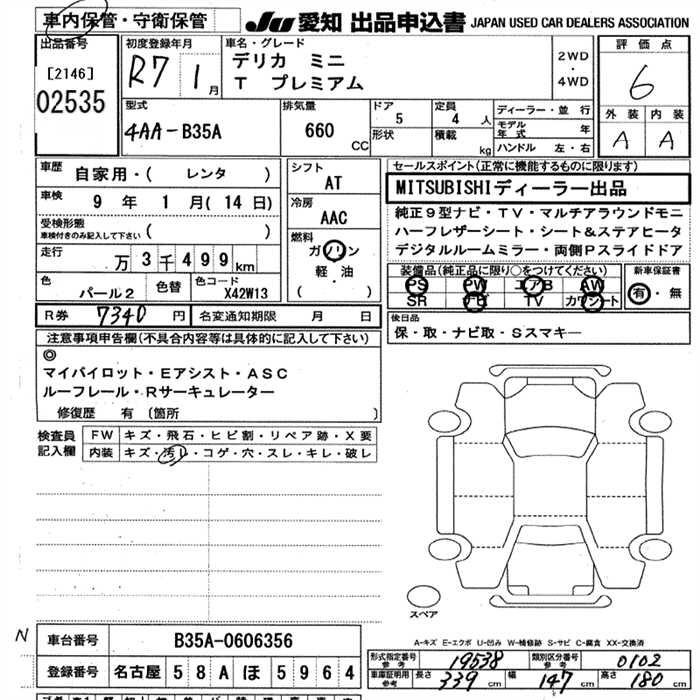 車内保管・守衛保管
JU 愛知 出品申込書 JAPAN USED CAR DEALERS ASSOCIATION
出品番号
[2146]
02535
初度登録年月
R7 1 月
車名・グレード
デリカ ミニ
T プレミアム
2WD
・
4WD
評価点
6
外装 内装
A A
型式
4AA-B35A
排気量
660
CC
ドア
5
形状
定員
4 人
積載
kg
ディーラー・並行
モデル年式 年
ハンドル 左・右
車歴
自家用・( レンタ )
車検
9 年 1 月(14 日)
受検形態
車検付きのみ記入して下さい ( )
走行
万 3 千 4 9 9 km
色
パール2
色替
色コード
X42W13
シフト
AT
冷房
AAC
燃料
ガソリン
軽・油
( )
セールスポイント(正常に機能するものに限ります)
MITSUBISHIディーラー出品
純正9型ナビ・TV・マルチアラウンドモニ
ハーフレザーシート・シート&ステアヒータ
デジタルルームミラー・両側Pスライドドア
装備品(純正品に限り○をつけてください)
PS PW エアB AW
SR ナビ TV カワシート
新車保証書
有・無
R券 7340 円 名変通知期限 月 日
後日品
保・取・ナビ取・Sスマキー
注意事項申告欄(不具合内容等は具体的に記入して下さい)
◎
マイパイロット・Eアシスト・ASC
ルーフレール・Rサーキュレーター
修復歴 有 〔箇所 〕
検査員
記入欄
FW キズ・飛石・ヒビ割・リペア跡・X要
内装 キズ・汚レ・コゲ・穴・スレ・キレ・破レ
スペア
A-キズ E-エクボ U-凹み W-補修跡 S-サビ C-腐食 XX-交換済
N
車台番号 B35A-0606356
登録番号 名古屋 5 8 A ほ 5 9 6 4
形式指定番号
参考
19538
類別区分番号
参考
0102
車庫証明用
参考
長さ 339 cm
幅 147 cm
高さ 180 cm